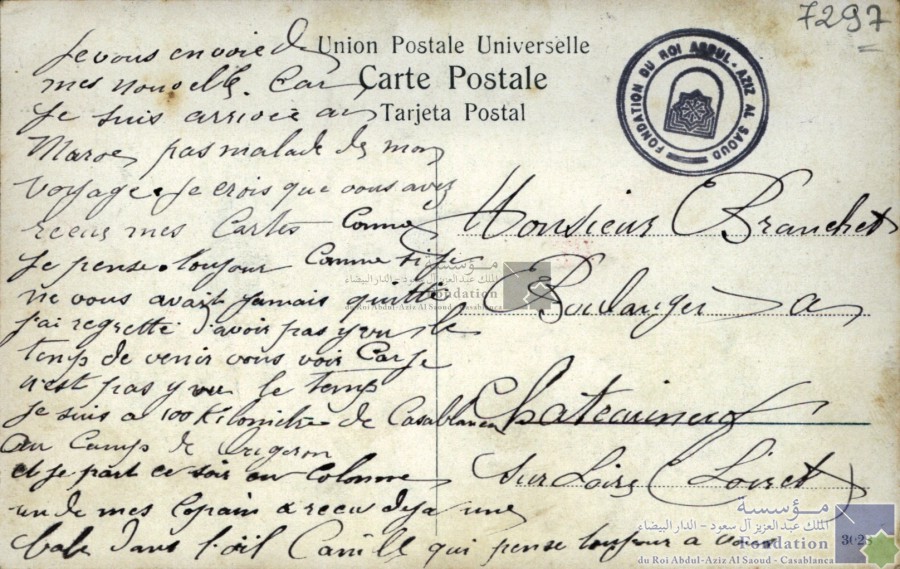 7297
Union Postale Universelle
Carte Postale
Tarjeta Postal
FONDATION DU ROI ABDUL-AZIZ AL SAOUD
Je vous envoie de
mes nouvelle. Car
Je suis arrivée au
Maroc pas malade de mon
voyage. Je crois que vous avez
recue mes Cartes Comme
Je pense toujour Comme si je
ne vous avait jamais quitté
j'ai regretté d'avoir pas y eu le
temp de venir vous voir Car Je
n'est pas y eu le temp
Je suis a 100 Kilomitre de Casablanca
au Camp de
et je part ce soir en Colonne
un de mes Copain a recu deja une
bale dans l'œil Camille qui pense toujour a vous
Monsieur Branchet
Boulanger a
Chateauneuf
sur Loire (Loiret)
مؤسسة
الملك عبد العزيز آل سعود - الدار البيضاء
Fondation
du Roi Abdul-Aziz Al Saoud - Casablanca
مؤسسة
الملك عبد العزيز آل سعود - الدار البيضاء
Fondation
du Roi Abdul-Aziz Al Saoud - Casablanca